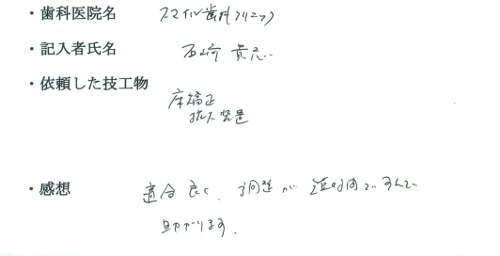 ・歯科医院名 スマイル歯科クリニック
・記入者氏名 石崎
・依頼した技工物
床矯正
拡大装置
・感想 適合良く、調整が短時間ですんで
助かります。